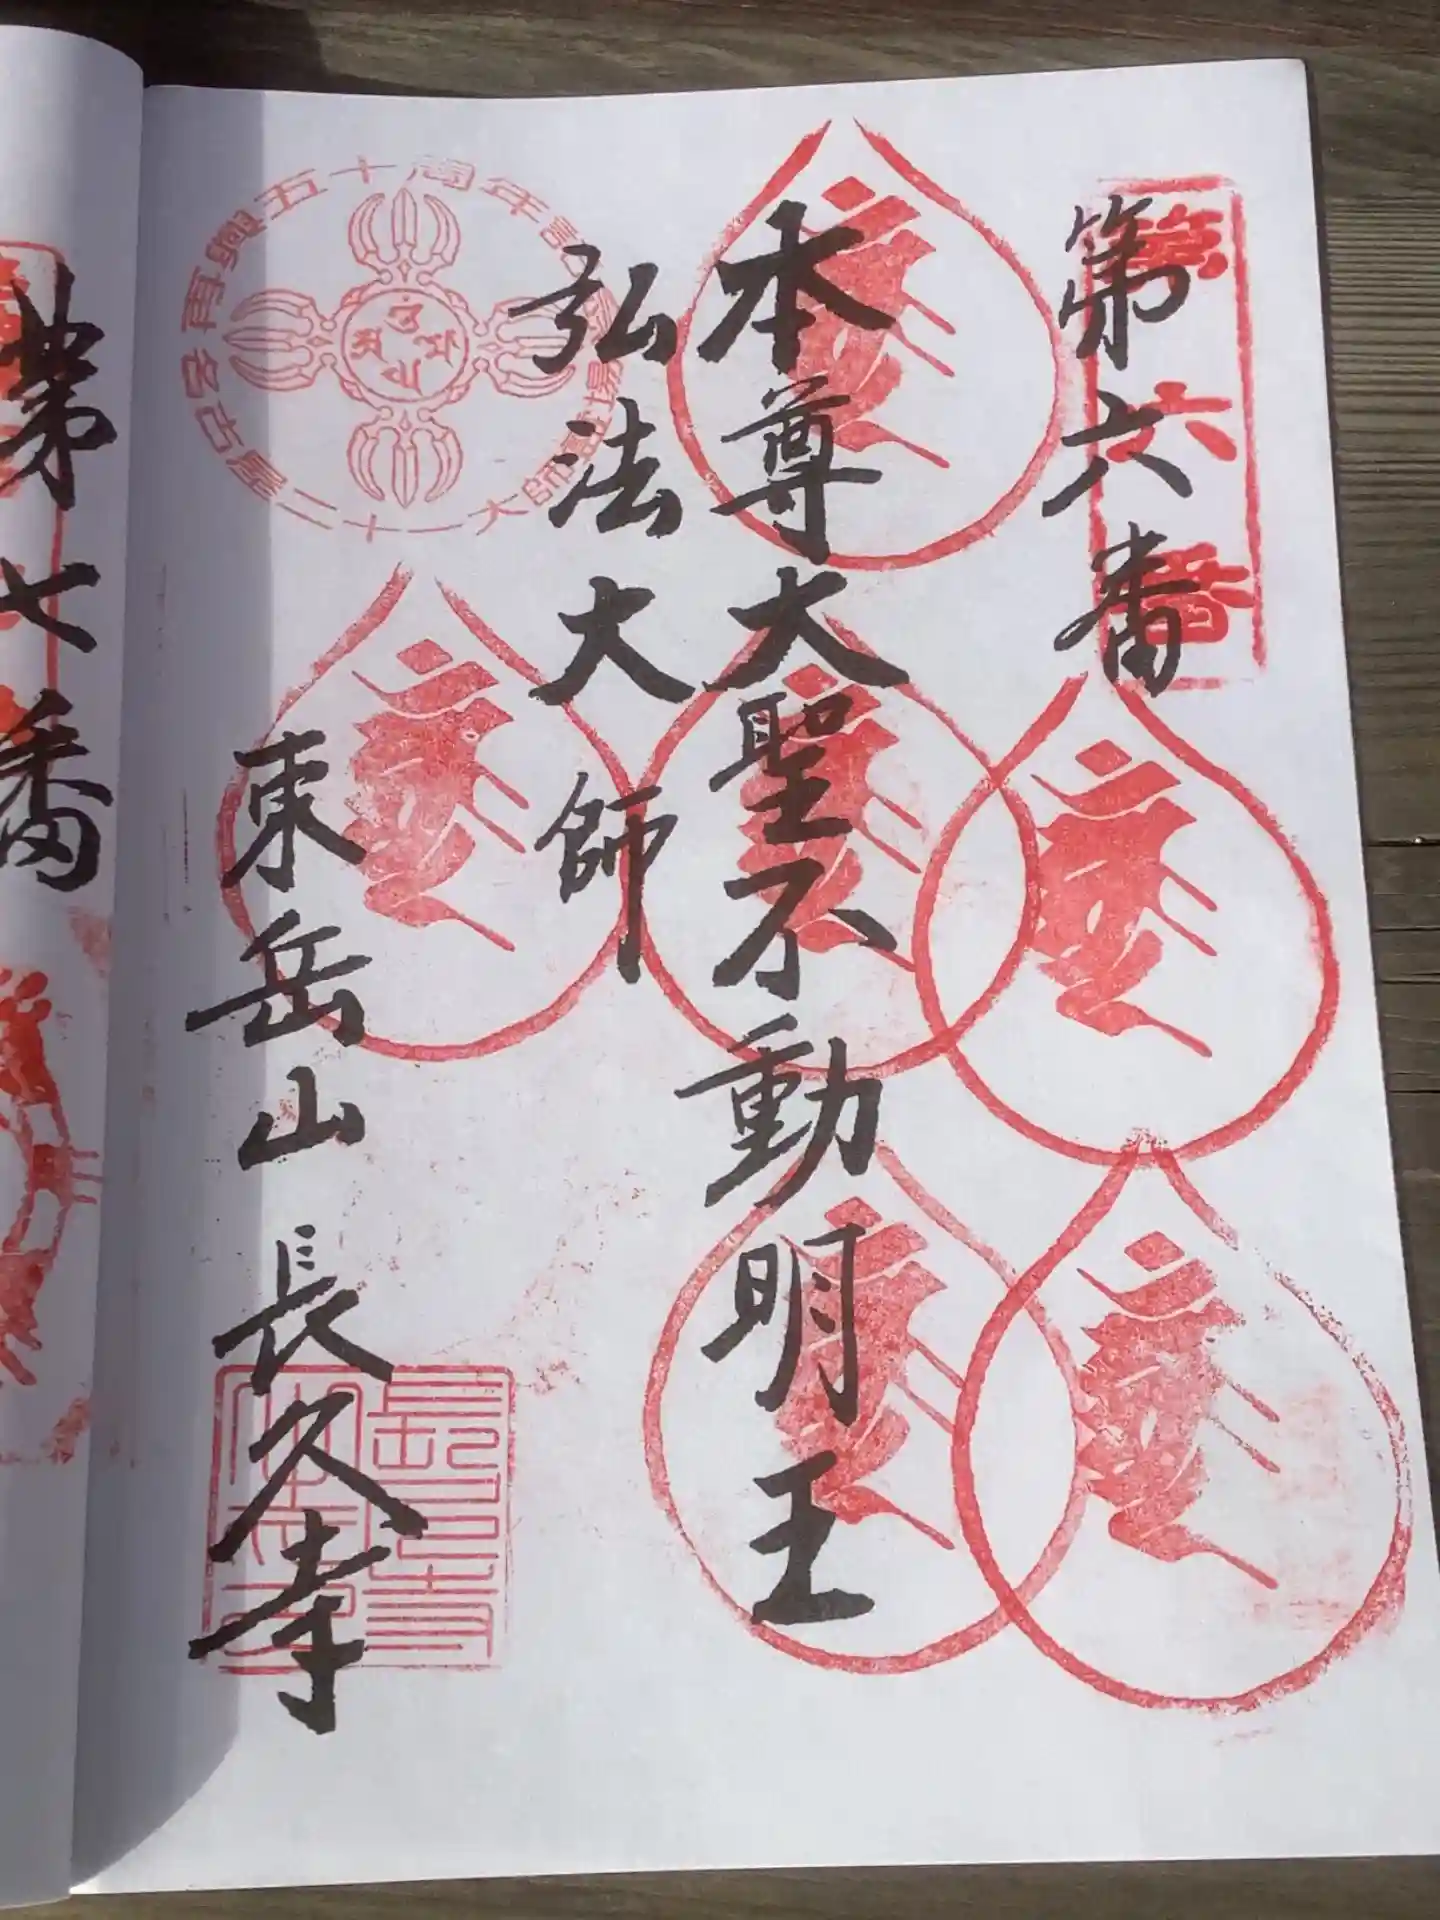 第六番
第六番
本尊大聖不動明王
弘法大師
東岳山 長久寺
五十周年記
名古屋二十一大師霊場
第七番